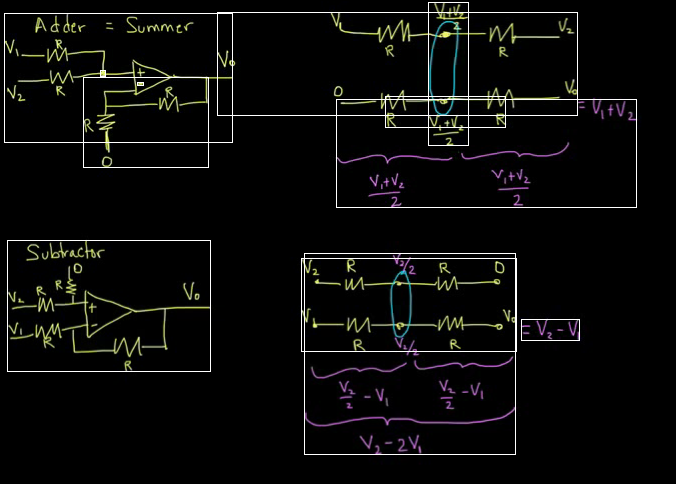 Adder = Summer
V₁ R
V₂ R
+
-
R
R
0
V₀
V₁+V₂
2
V₁ R R V₂
0 R R V₀ = V₁+V₂
V₁+V₂
2
V₁+V₂
2
V₁+V₂
2
Subtractor
0
R
V₂ R
+
V₁ R
-
R
V₀
V₂ R V₂/2 R 0
V₁ R V₂/2 R V₀ = V₂ - V₁
V₂/2 - V₁
V₂/2 - V₁
V₂ - 2V₁